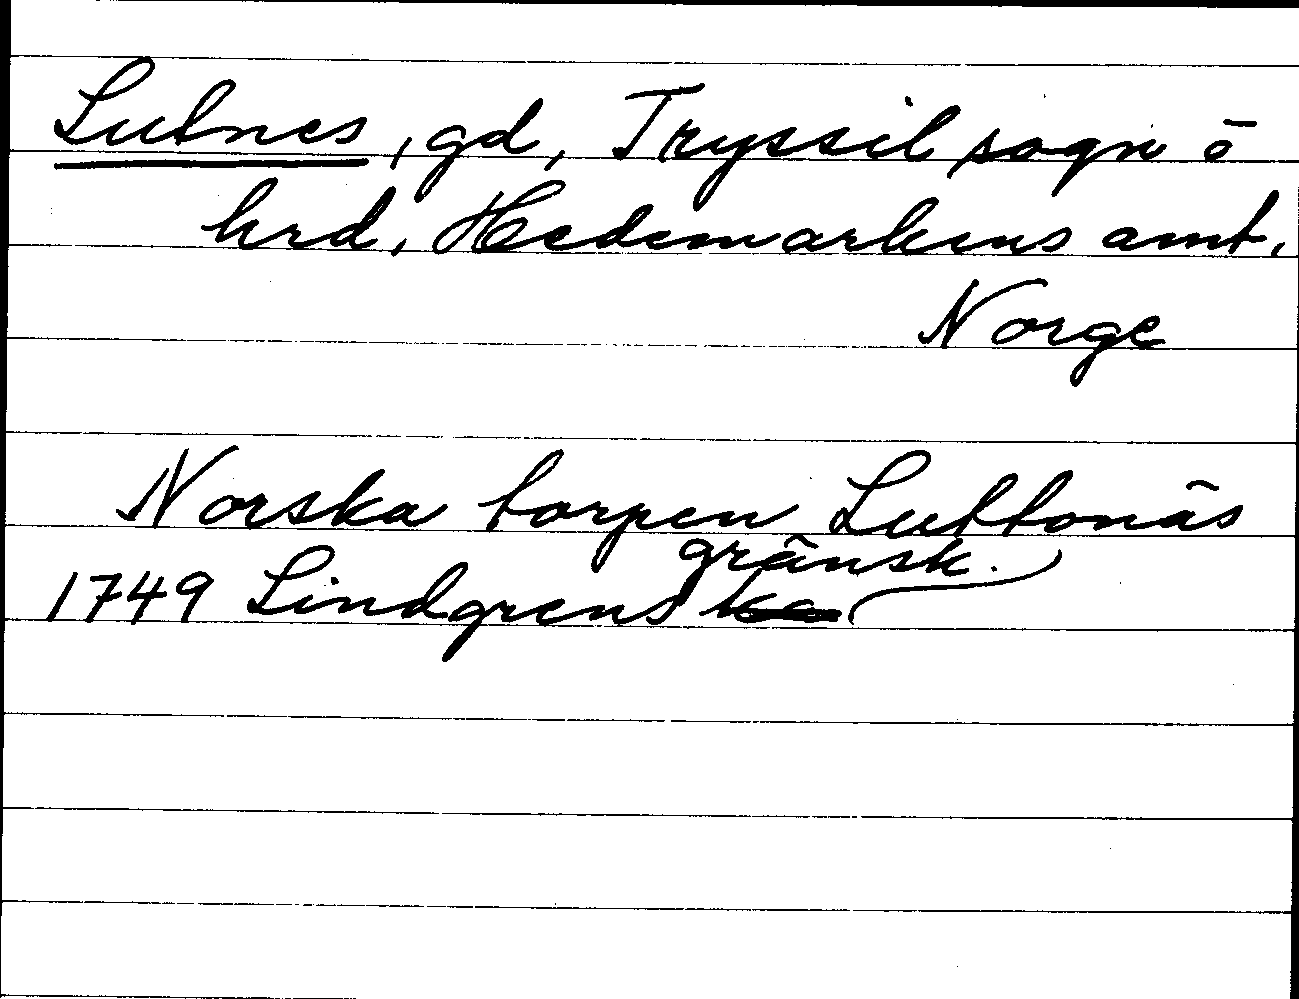 Lutnes, gd, Tryssil sogn ō
hrd, Hedemarkens amt,
Norge
Norska torpen Luttonäs
gränsk.
1749 Lindgrens